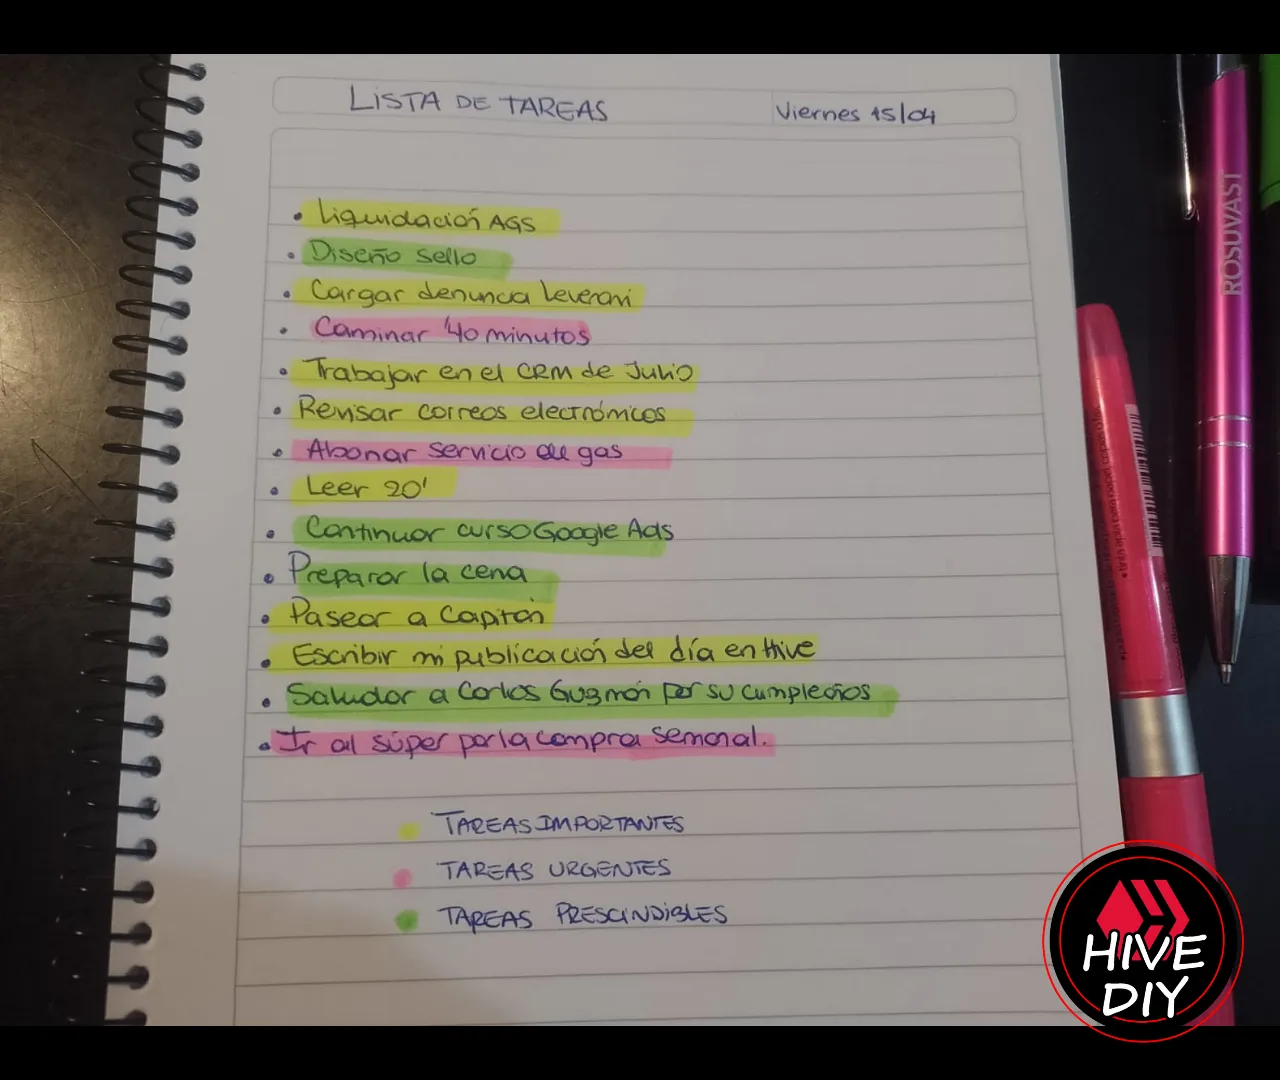 LISTA DE TAREAS
Viernes 15/04
• Liquidación AGS
• Diseño sello
• Cargar denuncia Leverani
• Caminar 40 minutos
• Trabajar en el CRM de Julio
• Revisar correos electrónicos
• Abonar servicio de gas
• Leer 20'
• Continuar curso Google Ads
• Preparar la cena
• Pasear a Capitán
• Escribir mi publicación del día en Hive
• Saludar a Carlos Guzmán por su cumpleaños
• Ir al súper por la compra semanal.
TAREAS IMPORTANTES
TAREAS URGENTES
TAREAS PRESCINDIBLES
ROSUVAST
HIVE
DIY